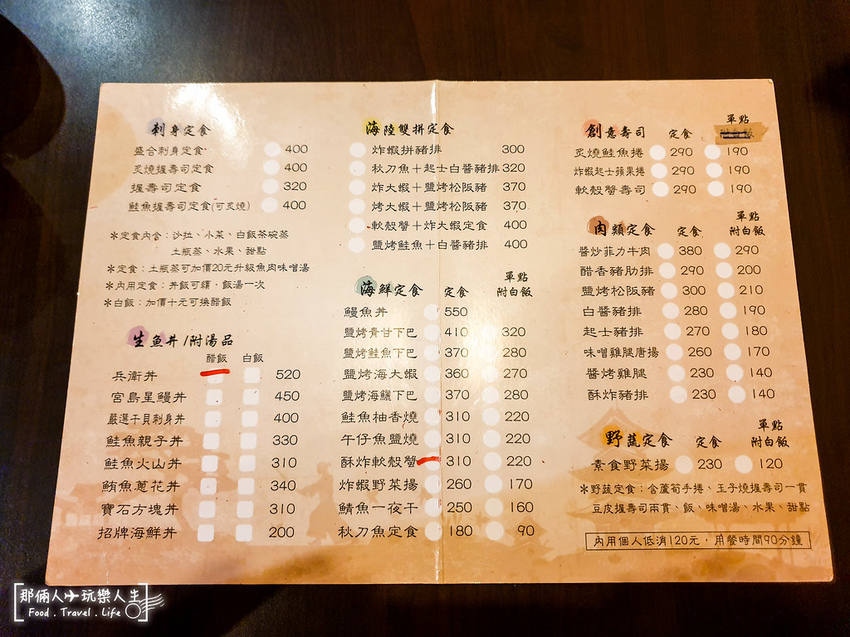 刺身定食
盛合刺身定食 400
炙燒握壽司定食 400
握壽司定食 320
鮭魚握壽司定食(可炙燒) 400
＊定食內含：沙拉、小菜、白飯茶碗蒸
土瓶蒸、水果、甜點
＊定食：土瓶蒸可加價20元升級魚肉味噌湯
＊內用定食：丼飯可續，飯湯一次
＊白飯：加價十元可換醋飯
生魚丼/附湯品
醋飯 白飯
兵衛丼 520
宮島星鰻丼 450
嚴選干貝刺身丼 400
鮭魚親子丼 330
鮭魚火山丼 310
鮪魚蔥花丼 340
寶石方塊丼 310
招牌海鮮丼 200
海陸雙拼定食
炸蝦拼豬排 300
秋刀魚＋起士白醬豬排 320
炸大蝦＋鹽烤松阪豬 370
烤大蝦＋鹽烤松阪豬 370
軟殼蟹＋炸大蝦定食 400
鹽烤鮭魚＋白醬豬排 400
海鮮定食 定食 單點附白飯
鰻魚丼 550
鹽烤青甘下巴 410 320
鹽烤鮭魚下巴 370 280
鹽烤海大蝦 360 270
鹽烤海鱺下巴 370 280
鮭魚柚香燒 310 220
午仔魚鹽燒 310 220
酥炸軟殼蟹 310 220
炸蝦野菜揚 260 170
鯖魚一夜干 250 160
秋刀魚定食 180 90
創意壽司 定食 單點
炙燒鮭魚捲 290 190
炸蝦起士蘋果捲 290 190
軟殼蟹壽司 290 190
肉類定食 定食 單點附白飯
醬炒菲力牛肉 380 290
醋香豬肋排 290 200
鹽烤松阪豬 300 210
白醬豬排 280 190
起士豬排 270 180
味噌雞腿唐揚 260 170
醬烤雞腿 230 140
酥炸豬排 230 140
野蔬定食 定食 單點附白飯
素食野菜揚 230 120
＊野蔬定食：含蘆筍手捲、玉子燒握壽司一貫
豆皮握壽司兩貫、飯、味噌湯、水果、甜點
內用個人低消120元，用餐時間90分鐘
那倆人玩樂人生
Food . Travel . Life